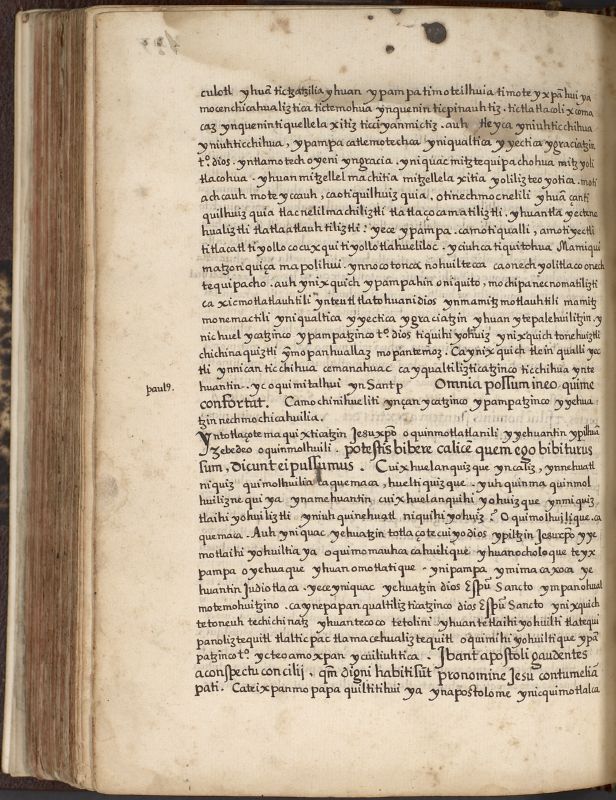 culotl yhuā tictzatzilia yhuan ypampa timoteilhuia timoteyxpāhuiya
mocenchicahualiztica tictemohua ynquenin ticpinauhtiz. tictlatlacolixcoma
caz ynquenin tiquellelaxitiz ticciyanmictiz. auh tleyca yniuh ticchihua
yniuh ticchihua, ypampa catle motechca yniqualtica yyectica ygraciatzin
t.º dios. yntlamotech oyeni yngracia. yniquac mitztequipachohua mitzyoli
tlacohua. yhuan mitzellelmachitia mitzellelaxitia yolilizteoyotica. moti
achcauh moteyccauh, ca otiquilhuizquia. otinechmocnelili yhuā çanti
quilhuizquia tlacnelilmachiliztli tlatlaçocamatiliztli. yhuan tla yectene
hualiztli tlatlaatlauhtiliztli: yece ypampa. camo tiqualli, amo tiyectli
titlacatl tiyollococuxqui tiyollotlahueliloc. yciuhca tiquitohua Mamiqui
matzonquiça mapolihui. ynnocotoncax nohuiltecca ca onechyolitlaco onech
tequipacho. auh ynixquich ypampahin oniquito, mochipa necnomatilizti
ca xicmotlatlauhtili ynteutl tlatohuani dios ynmamitzmotlauhtili mamitz
monemactili yniqualtica yyectica ygraciatzin yhuan ytepalehuilitzin. y
nic huel ycatzinco ypampatzinco t.º dios tiquihiyohuiz ynixquich tonehuiztli
chichinaquiztli ȳmopan huallaz mopantemoz. Ca ynixquich tlein qualli yec
tli ynnican ticchihua cemanahuac ca yqualtiliztica­tzinco ticchihua ynte
huantin. yc oquimitalhui yn Sant p Omnia possum in eo qui me
paul9.
confortat. Ca mochi nihueliti ynçan ycatzinco ypampatzinco yyehua
tzin nechmochicahuilia.
Yntotlaçotemaquixticatzin Jesu xpo oquinmotlatlanili yyehuantin ypilhuā
zebedeo oquinmolhuili. potestis bibere calicē quem ego bibiturus
sum, dicunt ei possumus. Cuix huel anquizque yncaliz, ynnehuatl
niquiz quimolhuilia ca quemaca, huel tiquizque. yuh quinma quinmol
huiliznequi ya ynamehuantin cuix huel anquihiyohuizque ynmiquiz
tlaihiyohuiliztli yniuh quinehuatl niquihiyohuiz? Oquimolhuilique. ca
quemaca. Auh yniquac yehuatzin totlaçotecuiyo dios ypiltzin Jesu xpo yye
motlaihiyohuiltia ya oquimomauhcacahuilique yhuan ocholoque teyx
pampa oyehuaque yhuan omotlatique - ynipampa ymimacaxoca ye
huantin Judiotlaca. yece yniquac yehuatzin dios Espū Sancto ympan ohual
motemohuitzino. ca ynepapan qualtiliztica­tzinco dios Espū Sancto ynixquich
tetoneuh techichinatz yhuan tecoco tetolini yhuan tetlaihiyohuilti tlatequi
panoliztequitl tlalticpac tlamacehualiztequitl oquimihiyohuiltique ypā
patzinco t.º yc teoamoxpan ycuiliuhtica. Ibant apostoli gaudentes
a conspectu concilij. qm̄ digni habiti sūt pro nomine Jesu contumeliā
pati. Ca teixpan mopapaquiltitihui ya ynapostolome ynicquimotlalca